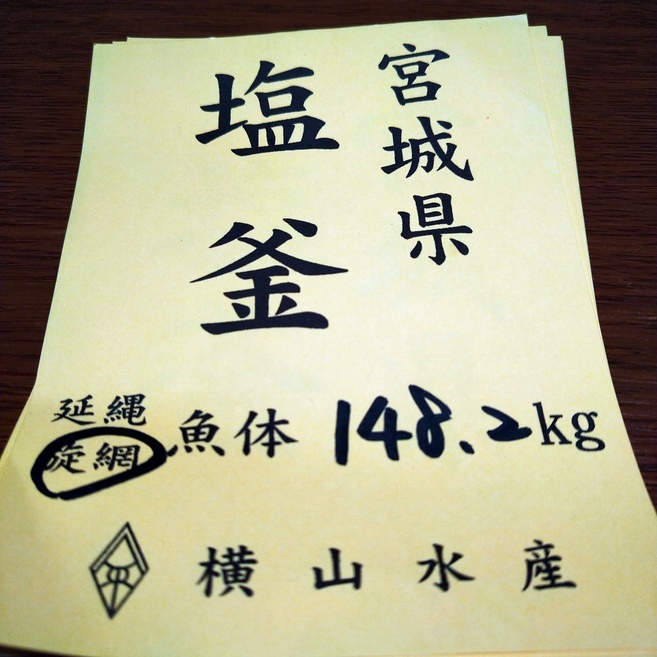 宮城県
塩釜
延縄
旋網
魚体 148.2kg
横山水産